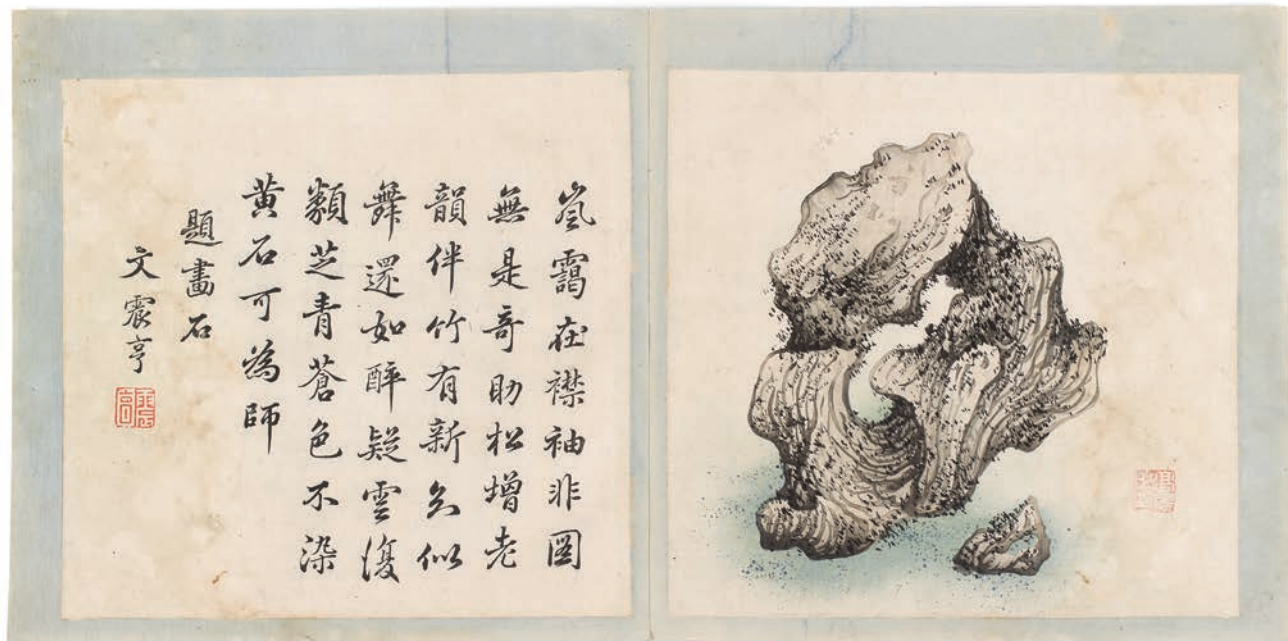 嵐靄在襟袖非圖
無是奇助松增老
韻伴竹有新知似
舞還如醉疑雲復
類芝青蒼色不染
黄石可為師
題畫石
文震亨